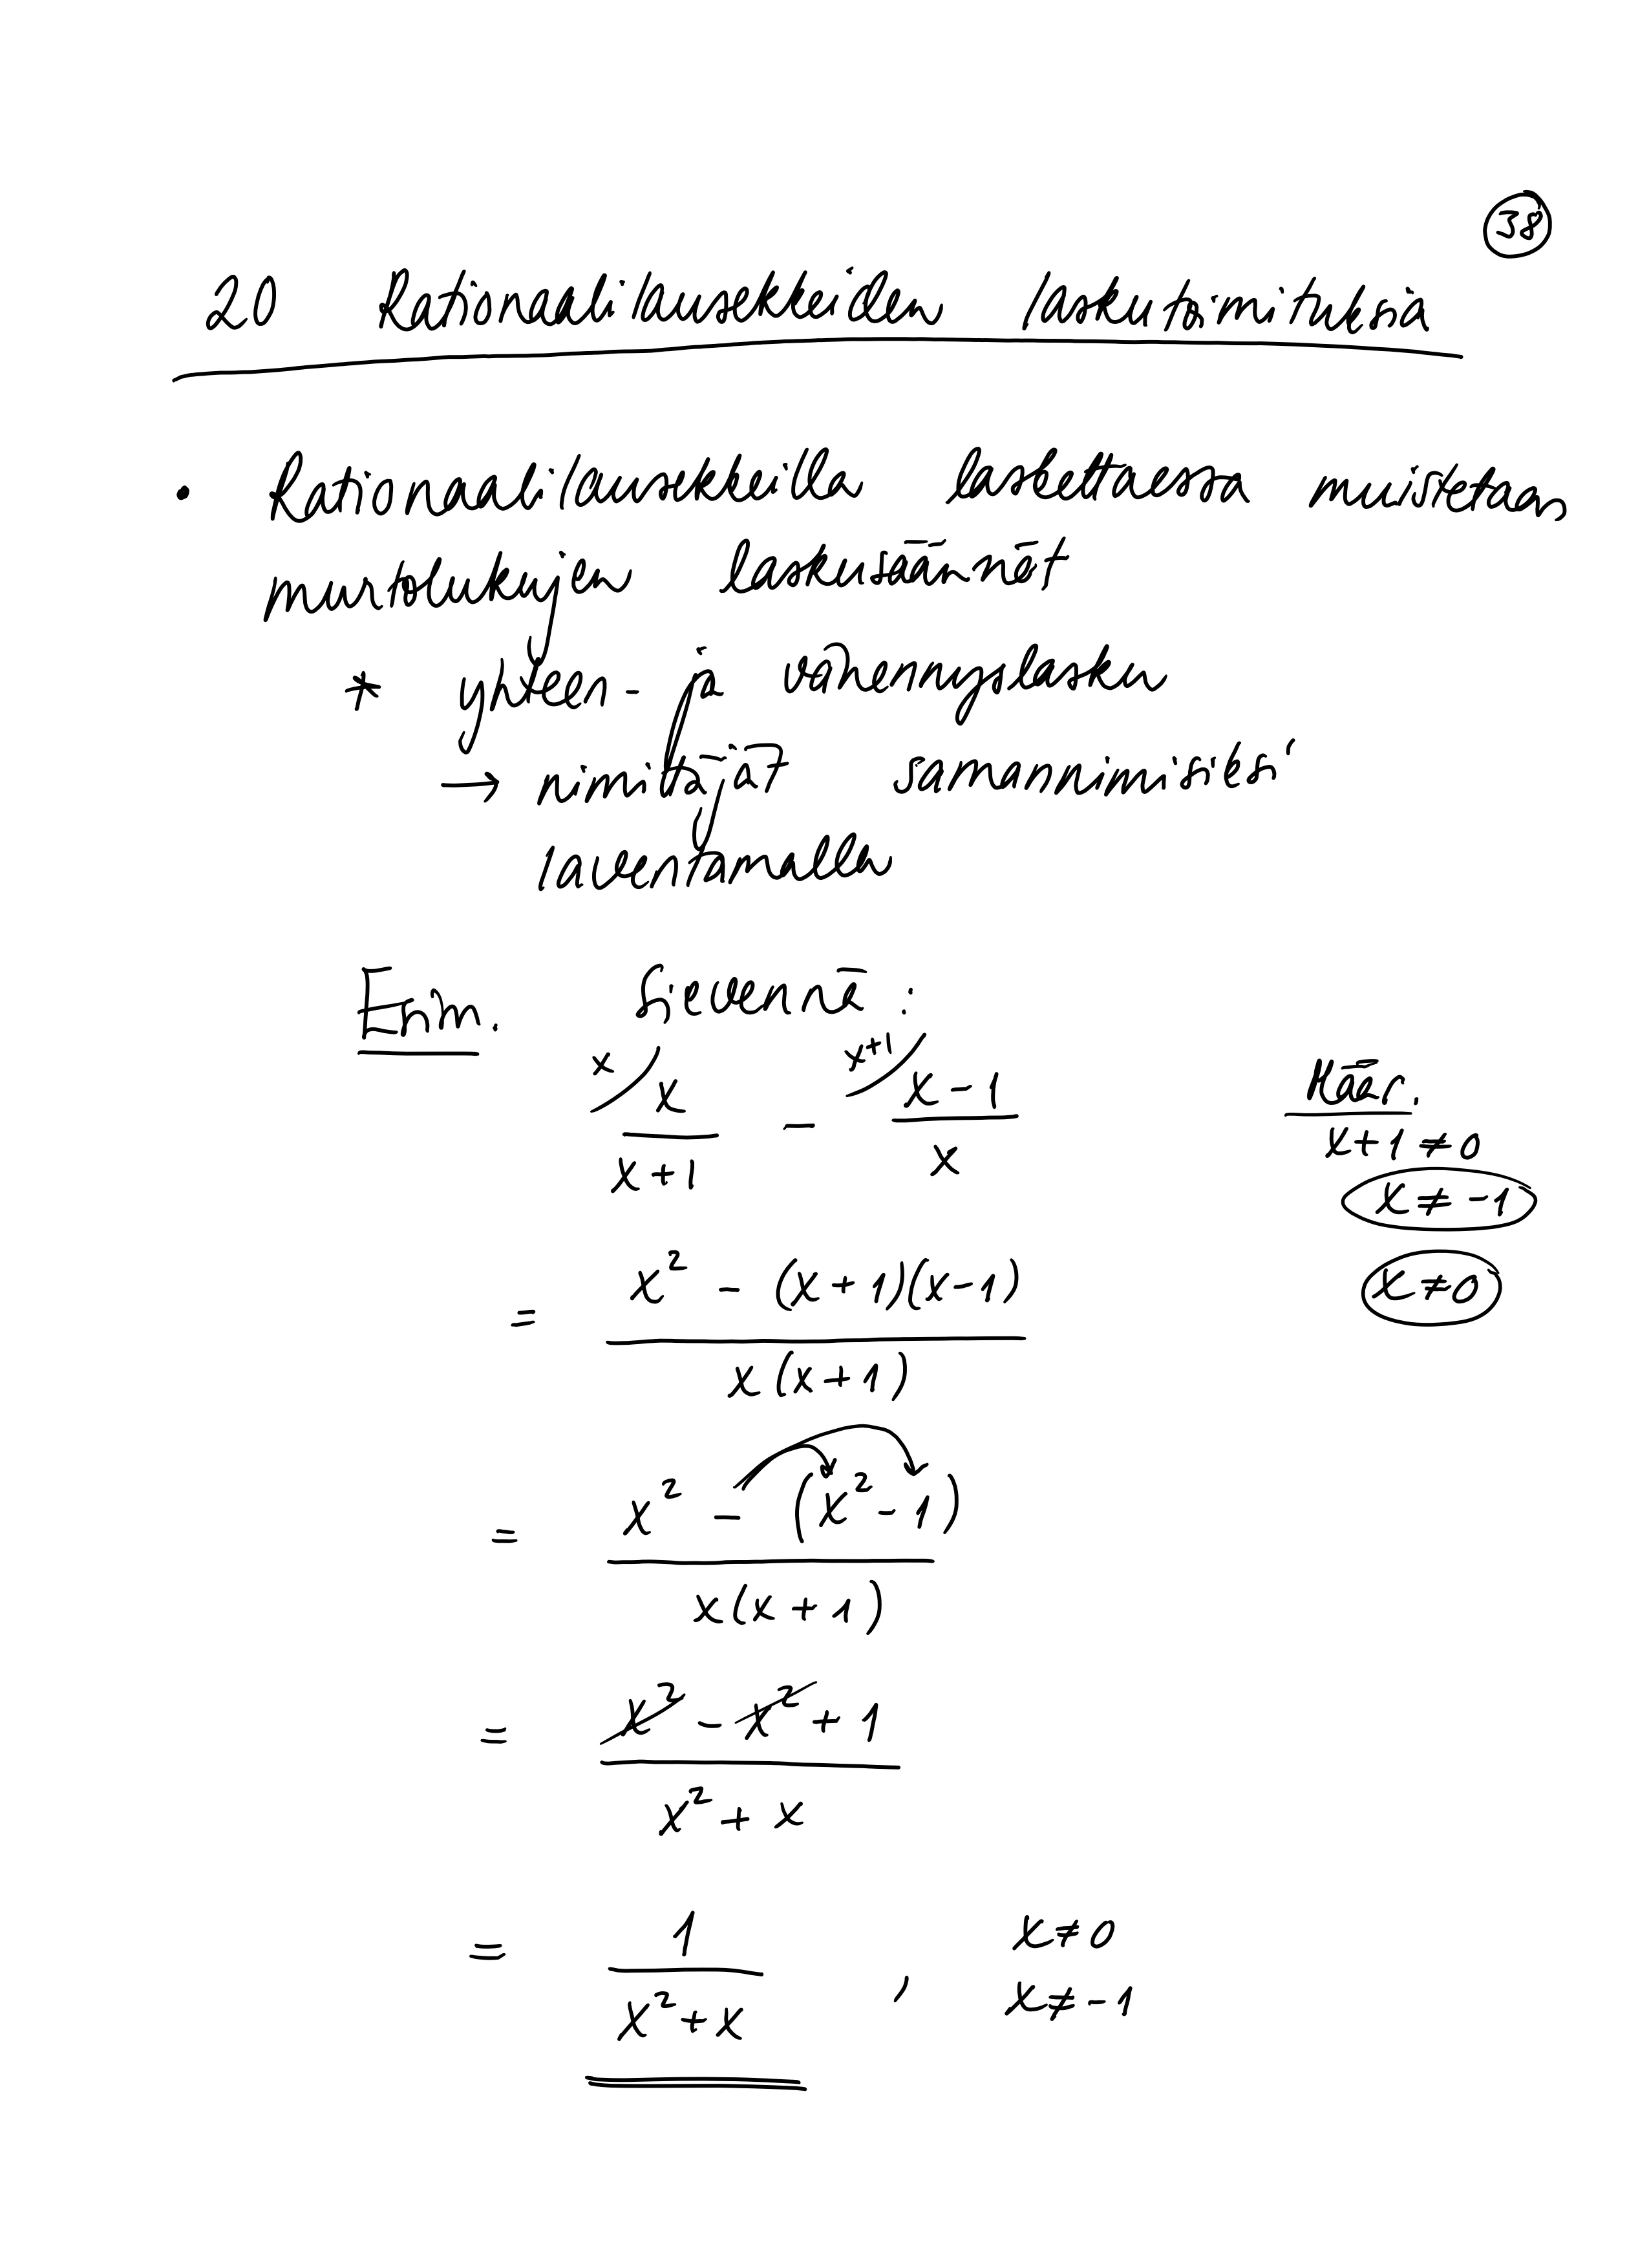 38
20 Rationaalilausekkeiden laskutoimituksia
• Rationaalilausekkeilla laskettaessa muistetaan
murtolukujen laskusäännöt
* yhteen- ja vähennyslasku
→ nimittäjät samannimisiksi
laventamalla
Esim. Sievennä:
x/ x/(x+1) - x+1/ (x-1)/x
Määr.
x+1≠0
x≠-1
x≠0
= (x² - (x+1)(x-1))/(x(x+1))
= (x² - (x²-1))/(x(x+1))
= (x² - x² + 1)/(x² + x)
= 1/(x²+x) , x≠0
x≠-1